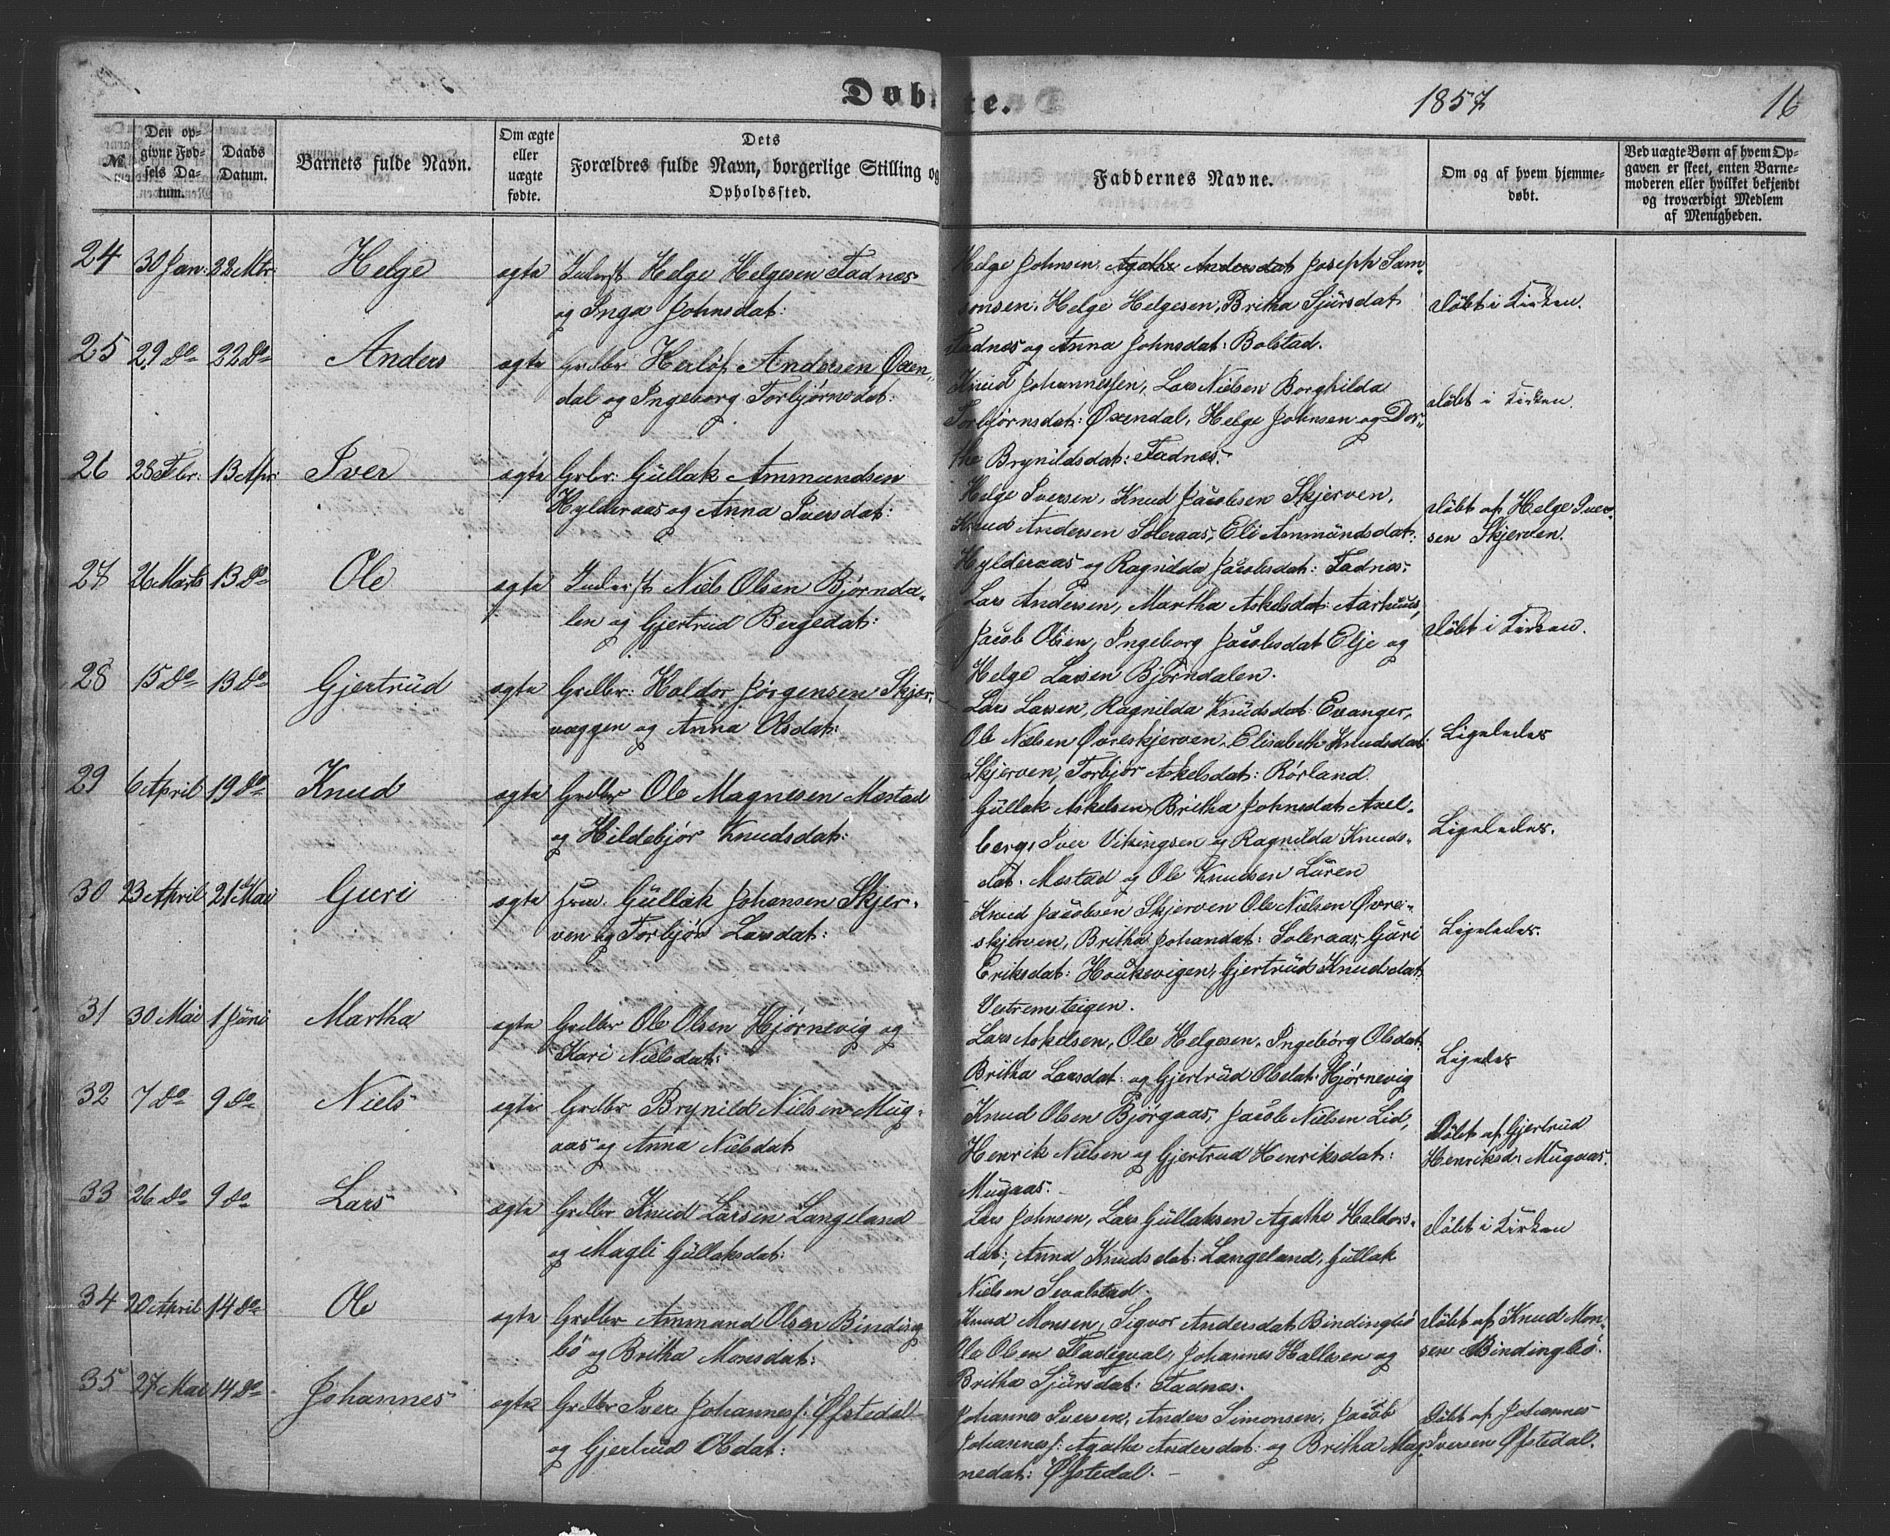 Døbte.
1857
16
№
Den opgivne Fødsels Datum.
Daabs Datum.
Barnets fulde Navn.
Om ægte eller uægte fødte.
Dets Forældres fulde Navn, borgerlige Stilling og Opholdssted.
Faddernes Navne.
Om og af hvem hjemmedøbt.
Ved uægte Børn af hvem Opgaven er skeet, enten Barnemoderen eller hvilket bekjendt og troværdigt Medlem af Menigheden.
24 30 Jan: 22 Mts: Helge ægte Inderst Helge Helgesen Fadnæs
og Inga Johnsdat:
Helge Johnsen, Agathe Andersdat Joseph Sam-
sonsen, Helge Helgesen, Britha Sjursdat
Fadnæs og Anna Johnsdat: Bolstad.
Døbt i Kirken.
25 29 do 22 do Anders ægte Grdbr Herlof Andersen Øxen-
dal og Ingeborg Torbjørnsdat:
Knud Johannessen, Lars Nielsen Borghilda
Torbjørnsdat: Øxendal, Helge Johnsen og Dor-
the Brynildsdat: Fadnes.
Døbt i Kirken.
26 28 Fbr: 13 Apr Iver ægte Grbr: Gullak Ammundsen
Hylderaas og Anna Iversdat:
Helge Iversen, Knud Jacobsen Skjerven,
Knud Andersen Soleraas, Eli Ammundsdat:
Hylderaas og Ragnilda Jacobsdat: Fadnes.
Døbt af Helge Iver-
sen Skjerven.
27 26 Marts 13 do Ole ægte Inderst Niels Olsen Bjørnda-
len og Gjertrud Børgedat:
Lars Andersen, Martha Askelsdat: Aarhuus,
Jacob Olsen, Ingeborg Jacobsdat Elje og
Helge Larsen Bjørndalen.
Døbt i Kirken.
28 15 do 13 do Gjertrud ægte Grdbr: Haldor Jørgensen Skjer-
væggen og Anna Olsdat:
Lars Larsen, Ragnilda Knudsdat: Evanger,
Ole Nielsen Øvreskjerven, Elisabeth Knudsdat:
Skjerven, Torbjør Askelsdat: Rørland.
Ligeledes
29 6 April 19 do Knud ægte Grdbr Ole Magnesen Mestad
og Hildebjør Knudsdat:
Gullak Askelsen, Britha Johnsdat: Axel-
berg, Iver Vikingsen og Ragnilda Knuds-
dat. Mestad og Ole Knudsen Luren
Ligeledes.
30 23 April 21 Mai Guri ægte Gullak Johansen Skjer-
ven og Torbjør Larsdat:
Knud Jacobsen Skjerven Ole Nielsen Øvre-
skjerven, Britha Johandat: Soleraas, Guri
Eriksdat: Houkevigen, Gjertrud Knudsdat:
Vestremsteigen.
Ligeledes.
31 30 Mai 1 Juni Martha ægte Grdbr Ole Olsen Hjørnevig og
Kari Nielsdat:
Lars Askelsen, Ole Helgesen, Ingeborg Olsdat:
Britha Larsdat: og Gjertrud Olsdat: Hjørnevig
Ligeledes
32 7 do 9 do Niels ægte Grdbr Brynild Nielsen Mug-
aas og Anna Nielsdat
Knud Olsen Bjørgaas, Jacob Nielsen Lid,
Henrik Nielsen og Gjertrud Henriksdat:
Mugaas.
Døbt af Gjertrud
Henriksd: Mugaas.
33 26 do 9 do Lars ægte Grdbr Knud Larsen Langeland
og Magli Gullaksdat:
Lars Johnsen, Lars Gullaksen Agathe Haldors-
dat:, Anna Knudsdat: Langeland, Gullak
Nielsen Sevalstad.
Døbt i Kirken
34 20 April 14 do Ole ægte Grdbr Ammund Olsen Binding-
bø og Britha Monsdat:
Knud Monsen, Sigvor Andersdat Bindingbø
Ole Olsen Fladeqval, Johannes Hallesen og
Britha Sjursdat: Fadnes.
Døbt af Knud Mon-
sen Bindingbø.
35 27 Mai 14 do Johannes ægte Grdbr Iver Johannesf: Øfstedal
og Gjertrud Olsdat:
Johannes Iversen, Anders Simonsen, Jacob
Johannesf: Agathe Andersdat: og Britha Mag-
nesdat: Øfstedal.
Døbt af Johannes
Iversen Øfstedal.